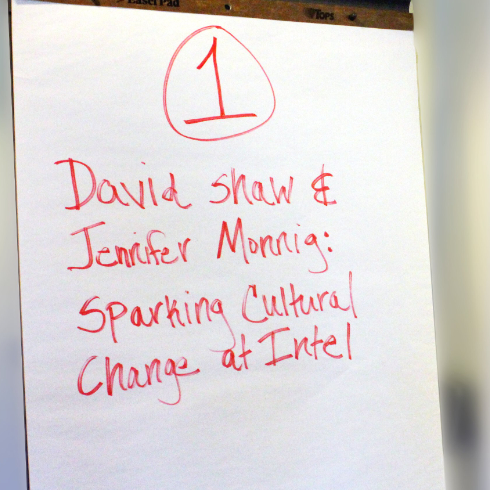 Easel Pad
Tops
1
David Shaw &
Jennifer Monnig:
Sparking Cultural
Change at Intel